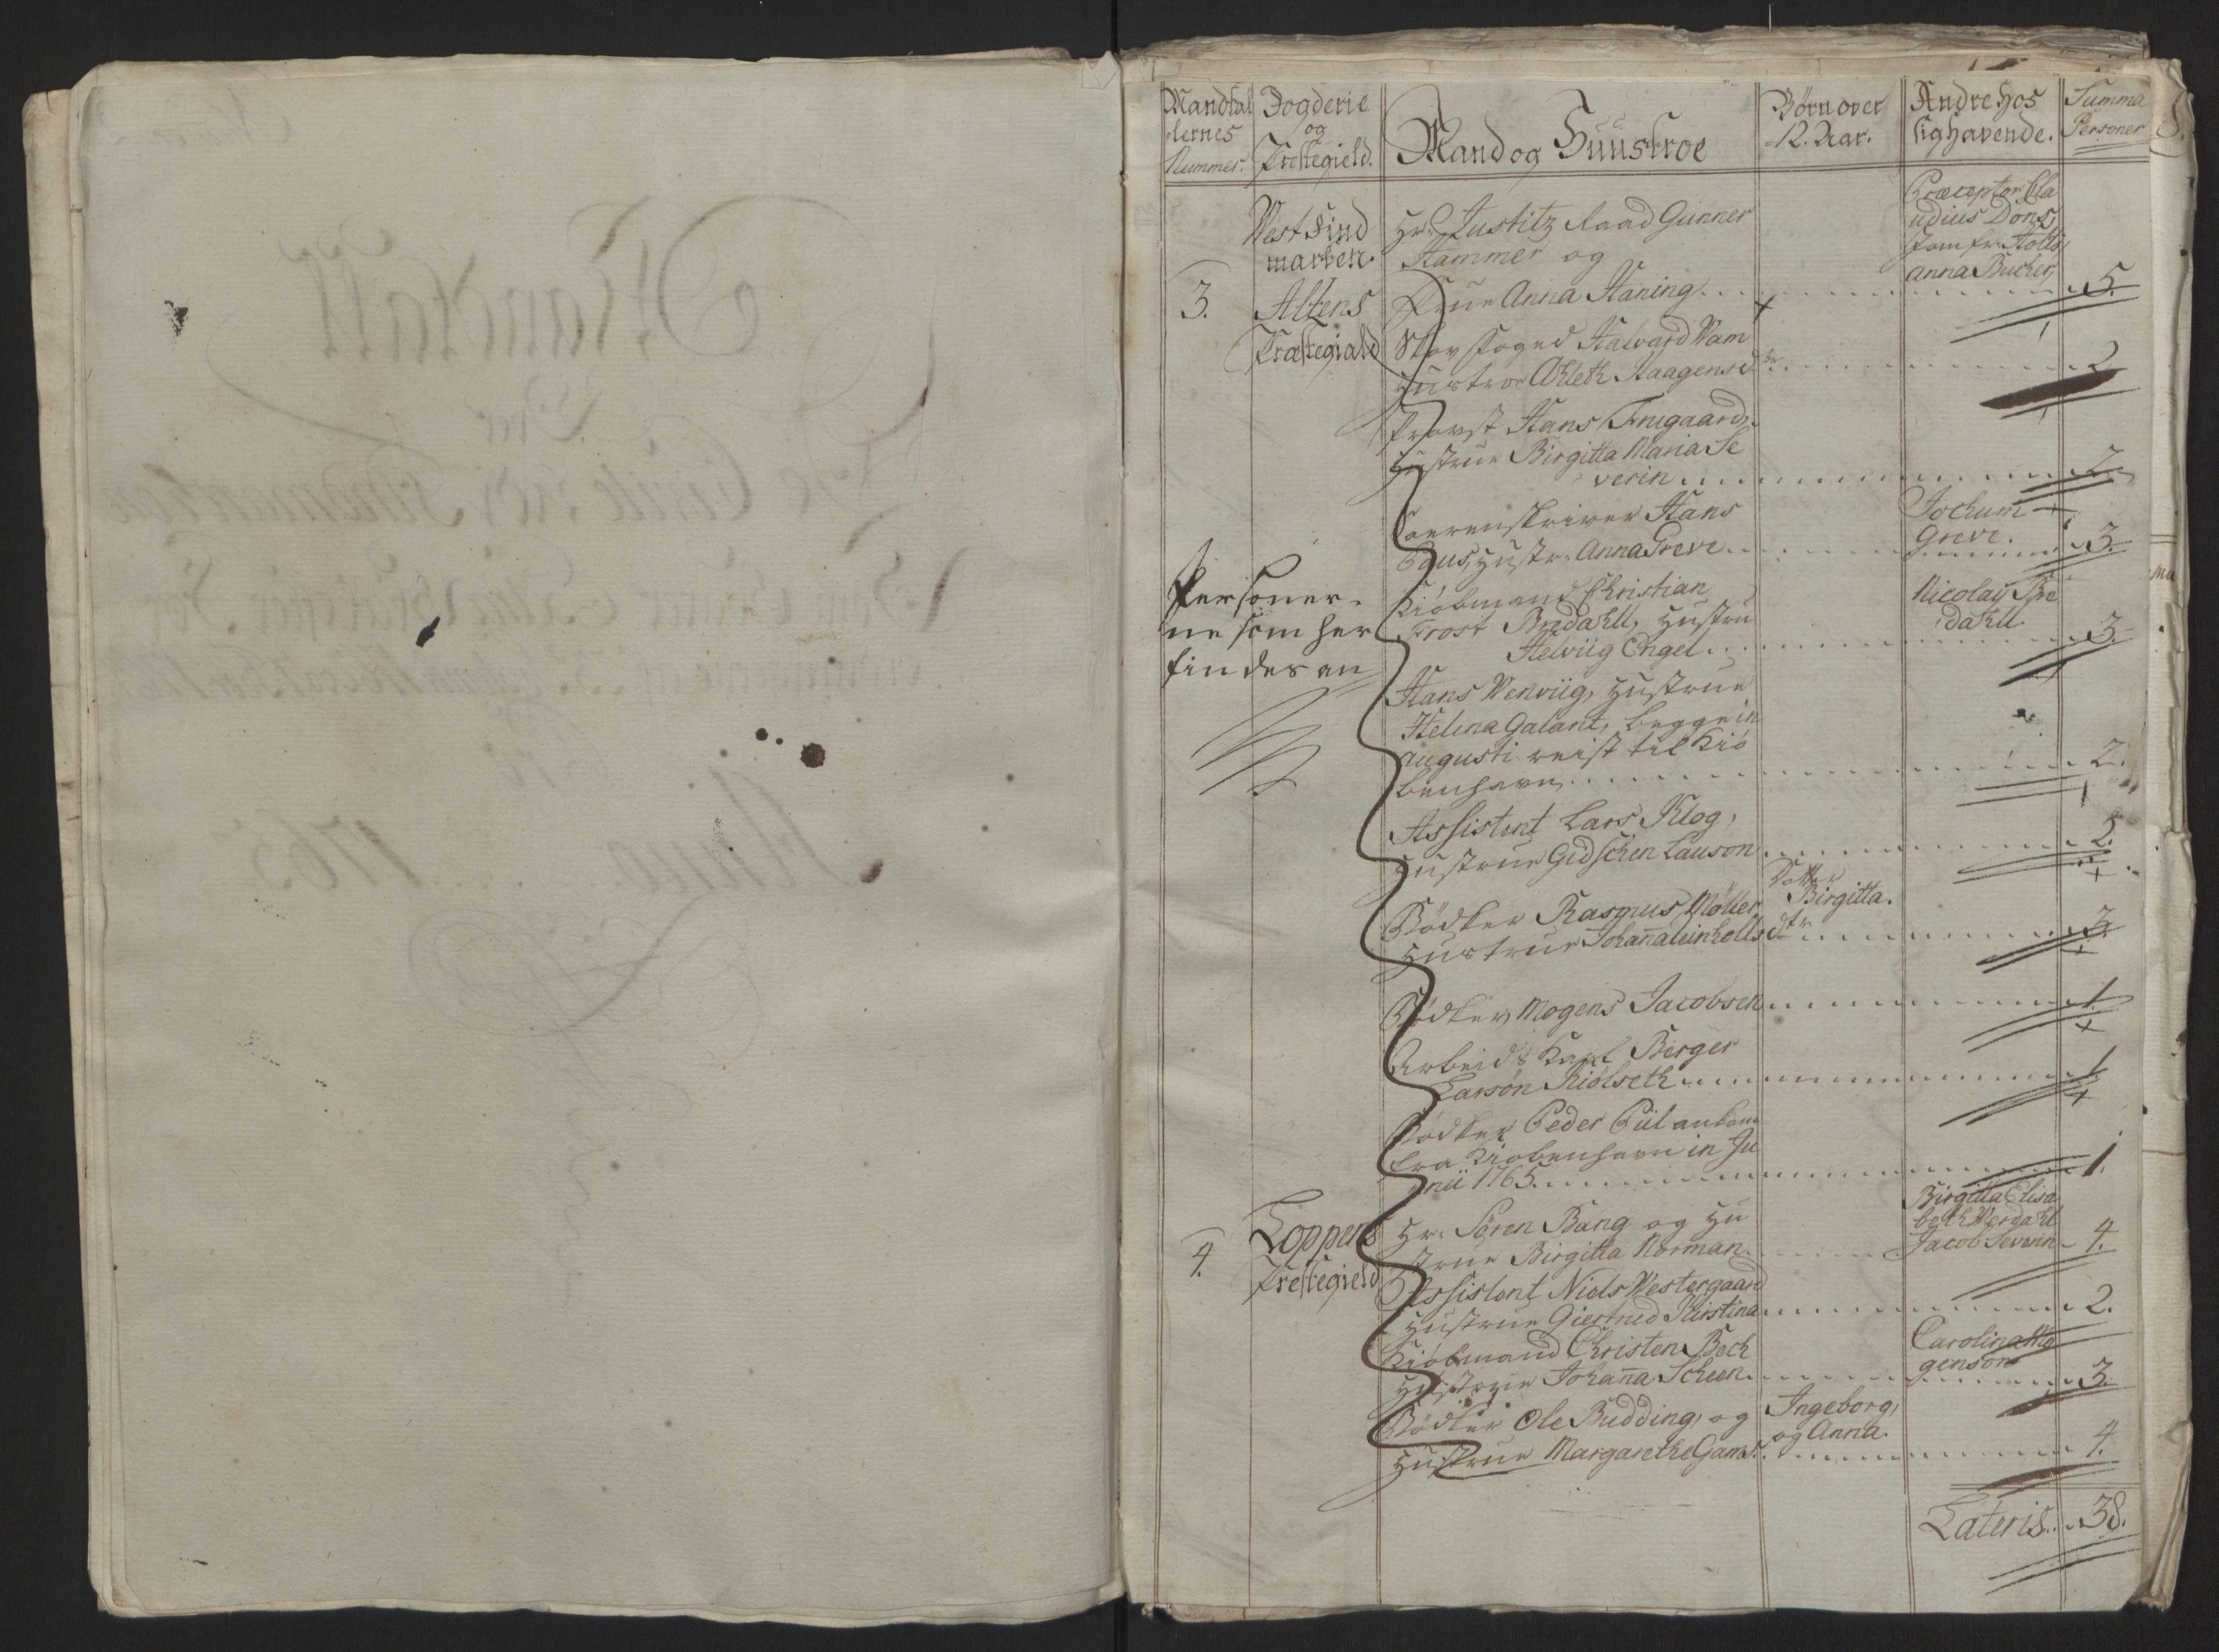 Mandtal
lernes
Nummer.
Fogderie
og
Præstegield.
Mand og Huustroe
Børn over
12. Aar.
Andre hos
sig havende.
Summa
Personer
West Find
marken.
3.
Altens
Præstegield
Hr. Justitz Raad Gunner
Hammer og
Frue Anna Haning
Præceptor Cla
udius Dons,
Jomfr.
anna Bucher,
5.
Skov Foged Halvard Wam
Hustroe Ahleth Haagensdtr
2
Provst Hans Frugaard,
Hustrue Birgitta Maria Se
verin
2.
Sorenskriver Hans
Paus, Hustr. Anna Greve
Jochum
Greve.
3.
Kiøbmand Christian
Frost Bredahll, Hustru
Helviig Engel
Nicolay Bre
dahll.
3.
Personer-
ne som her
findes an
Hans Wenviig, Hustrue
Helena Galant, begge in
Augusti reist til Kiø
benhavn
2.
Assistent Lars Klog,
Hustrue Gidschen Lauson
2.
Bødker Rasmus Møller
Hustrue Johanna Leinholtsdtr
Datter
Birgitta.
3.
Bødker Mogens Jacobsen
1.
Arbeids Karl Berger
Larsøn Kiølseth
1.
Bødker Peder Piil ankom
fra Kiøbenhavn in Ju
nii 1765.
1.
4.
Loppens
Præstegield
Hr. Søren Bang og Hu
strue Birgitta Norman
Birgitta Elisa
beth Werdahl
Jacob Severin
4.
Assistent Niels Westergaard
Hustrue Giertrud Kirstina
2.
Kiøbmand Christen Bech
Hustrue Johanna Scheen
Carolina Mo
genson
3.
Bødker Ole Budding, og
Hustrue Margarethe Gams.
Ingeborg,
og Anna.
4.
Lateris 38.